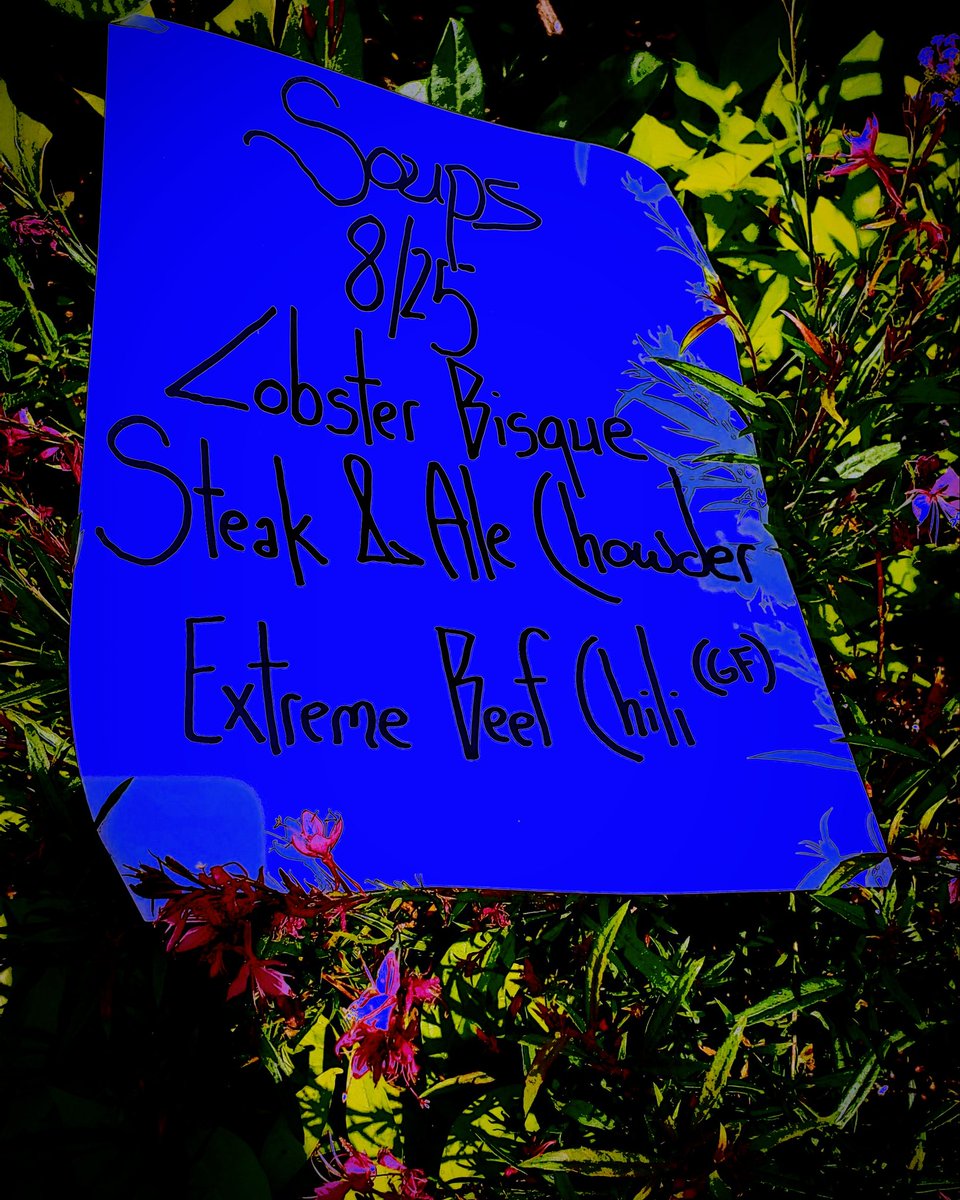 Soups
8/25
Lobster Bisque
Steak & Ale Chowder
Extreme Beef Chili (GF)